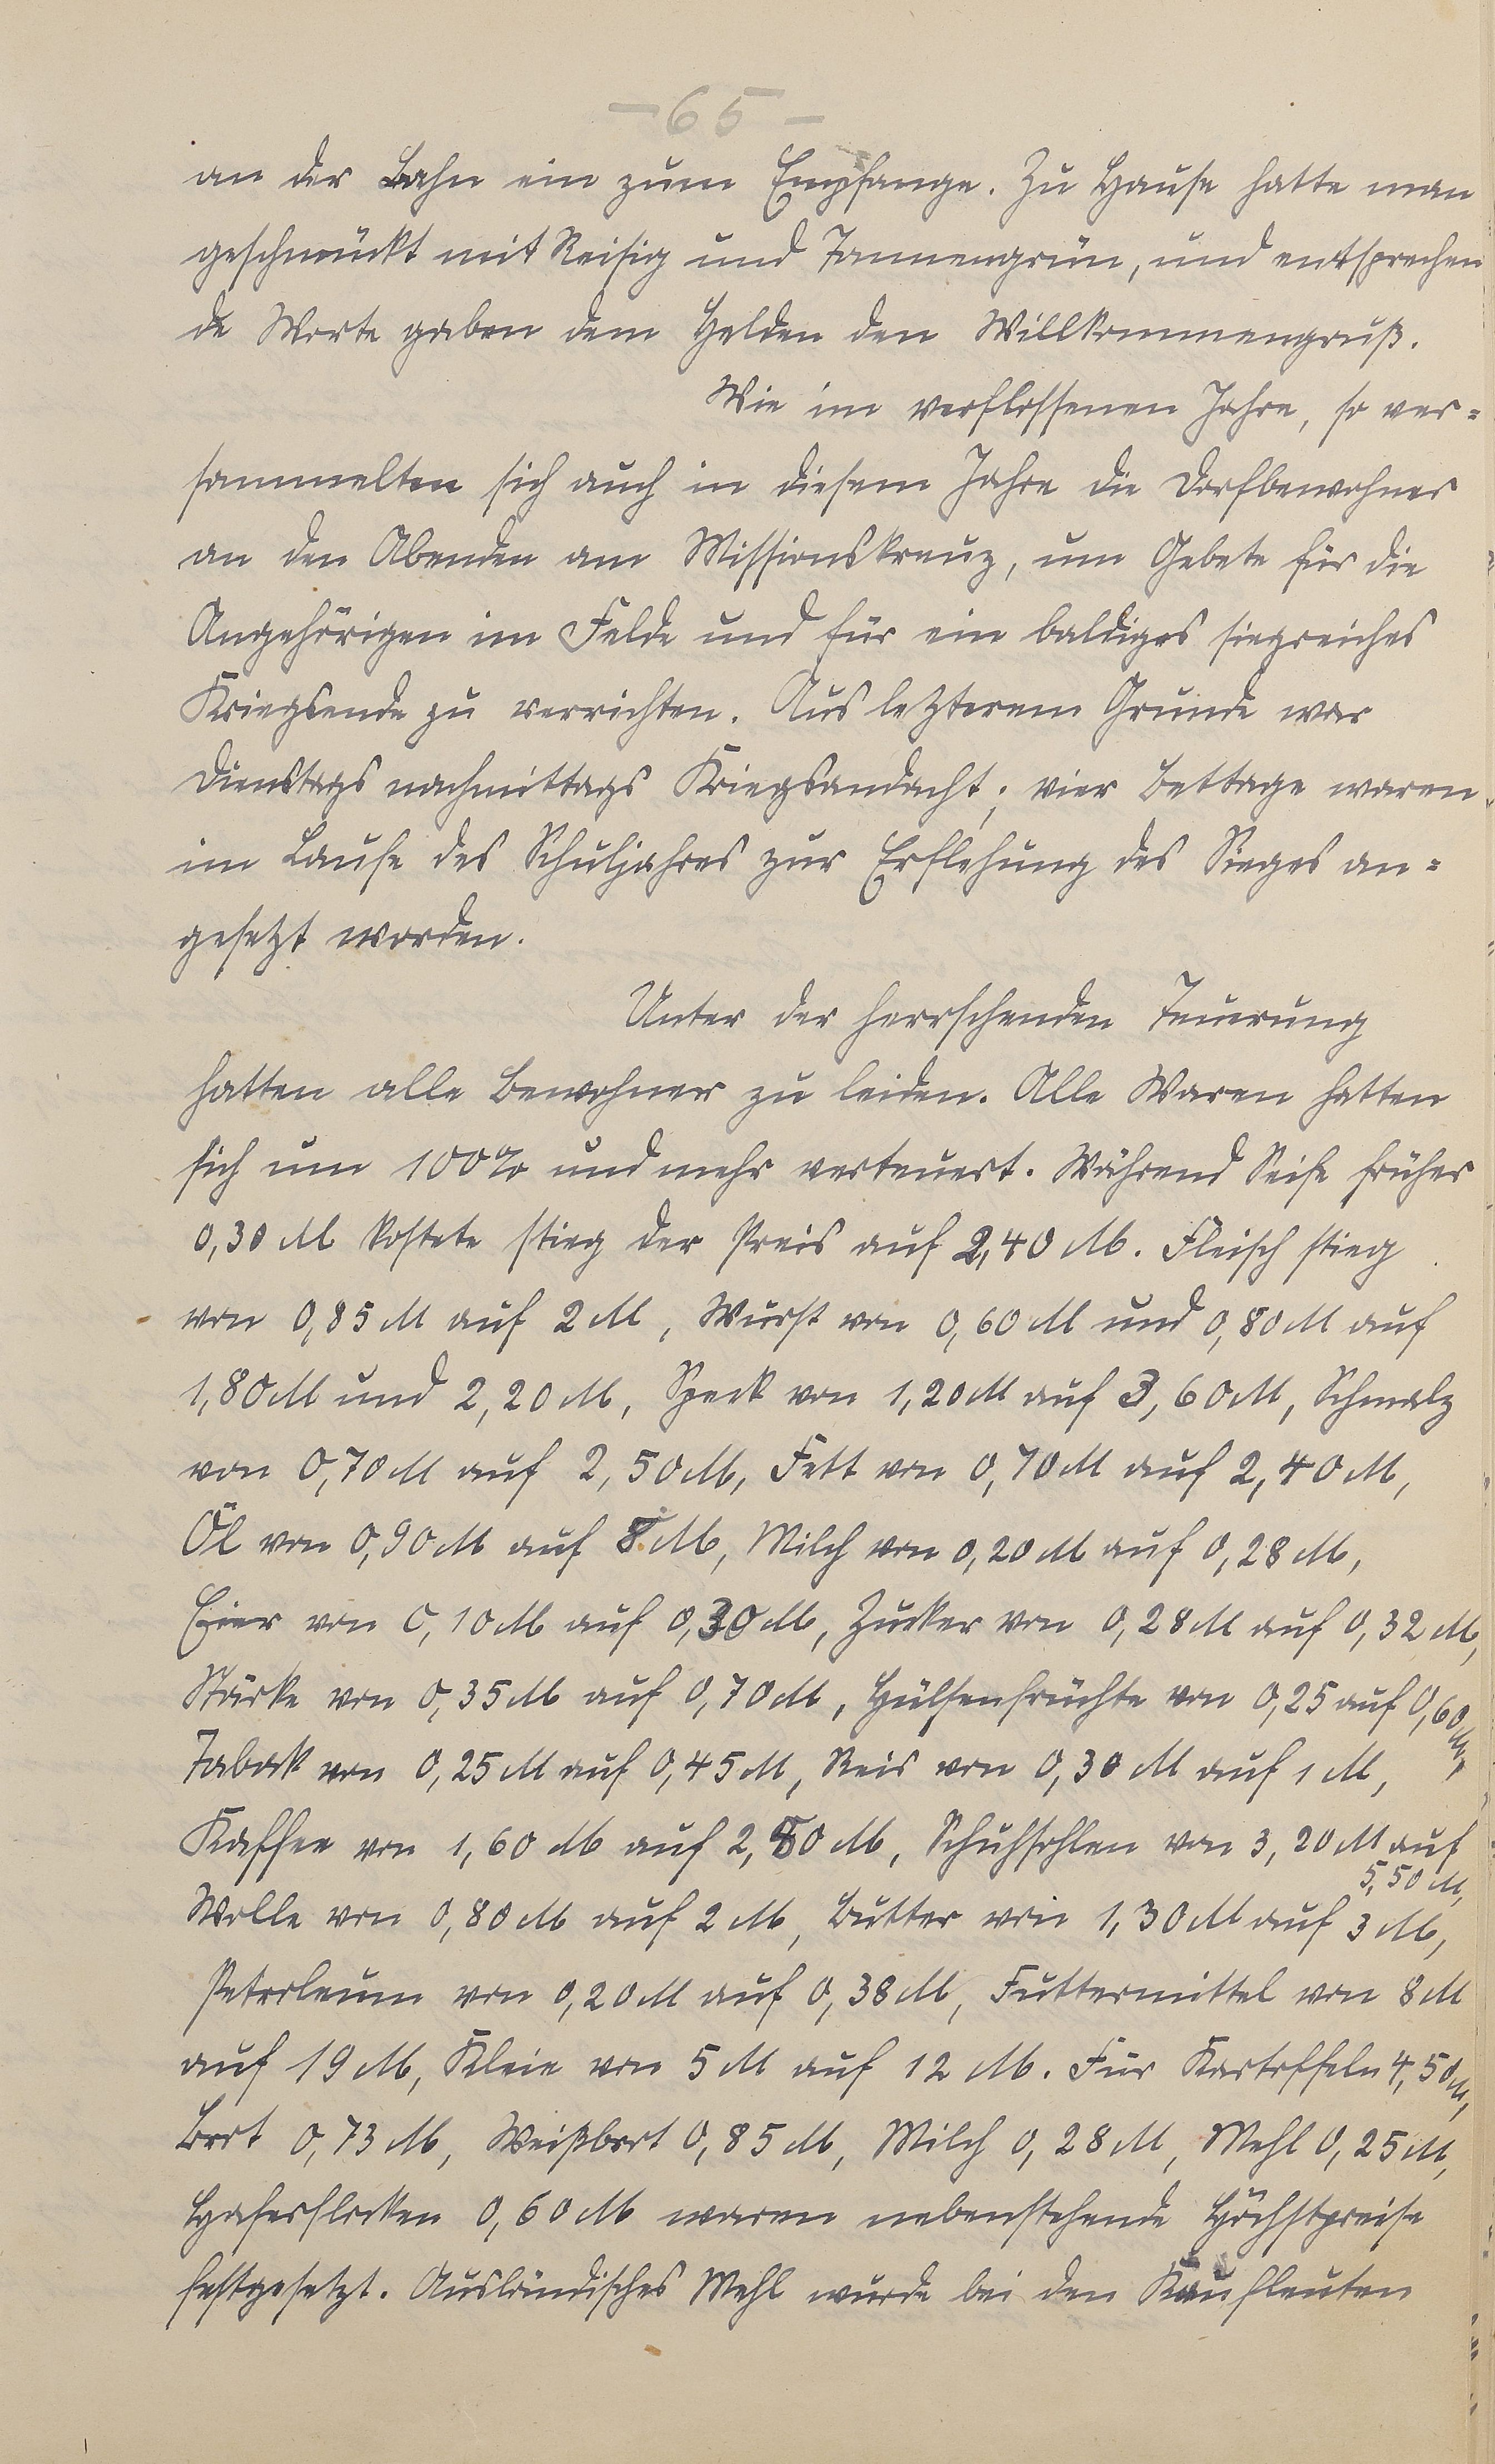 -65-
an der Bahn ein zum Empfange. Zu Hause hatte man
geschmückt mit Reisig und Tannengrün, und entsprechen
de Worte gaben dem Helden den Willkommengruß.
Wie im verflossenen Jahre, so ver=
sammelten sich auch in diesem Jahre die Dorfbewohner
an den Abenden am Missionskreuz, um Gebete für die
Angehörigen im Felde und für ein baldiges siegreiches
Kriegsende zu verrichten. Aus letzterem Grunde war
Dienstags nachmittags Kriegsandacht; vier Bettage waren
im Laufe des Schuljahres zur Erflehung des Sieges an=
gesetzt worden.
Unter der herrschenden Teuerung
hatten alle Bewohner zu leiden. Alle Waren hatten
sich um 100% und mehr verteuert. Während Seife früher
0,30 M kostete stieg der Preis auf 2,40 M. Fleisch stieg
von 0,85 M auf 2 M, Wurst von 0,60 M und 0,80 M auf
1,80 M und 2,20 M, Speck von 1,20 M auf 3,60 M, Schmalz
von 0,70 M auf 2,50 M, Fett von 0,70 M auf 2,40 M,
Öl von 0,90 M auf 8 M, Milch von 0,20 M auf 0,28 M,
Eier von 0,10 M auf 0,30 M, Zucker von 0,28 M auf 0,32 M,
Stärke von 0,35 M auf 0,70 M, Hülsenfrüchte von 0,25 auf 0,60 M,
Tabak von 0,25 M auf 0,45 M, Reis von 0,30 M auf 1 M,
Kaffee von 1,60 M auf 2,80 M, Schuhsohlen von 3,20 M auf
5,50 M,
Wolle von 0,80 M auf 2 M, Butter von 1,30 M auf 3 M,
Petroleum von 0,20 M auf 0,38 M, Futtermittel von 8 M
auf 19 M, Kleie von 5 M auf 12 M. Für Kartoffeln 4,50 M,
Brot 0,73 M, Weißbrot 0,85 M, Milch 0,28 M, Mehl 0,25 M,
Haferflocken 0,60 M waren nebenstehende Höchstpreise
festgesetzt. Ausländisches Mehl wurde bei den Kaufleuten